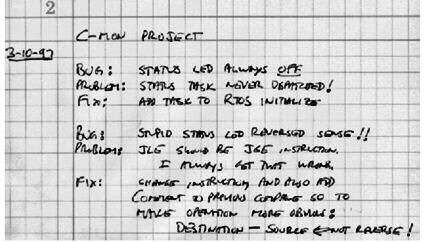 2
C-MON PROJECT
3-10-97
BUG: STATUS LED ALWAYS OFF
PROBLEM: STATUS TASK NEVER DEPATCHED!
FIX: ADD TASK TO RTOS INITIALIZE
BUG: STUPID STATUS LED REVERSED SENSE!!
PROBLEM: JLE SHOULD BE JGE INSTRUCTION.
I ALWAYS GET THAT WRONG.
FIX: CHANGE INSTRUCTION, AND ALSO ADD
COMMENT TO PREVIOUS COMPARE SO TO
MAKE OPERATION MORE OBVIOUS:
DESTINATION — SOURCE ← NOT REVERSE!